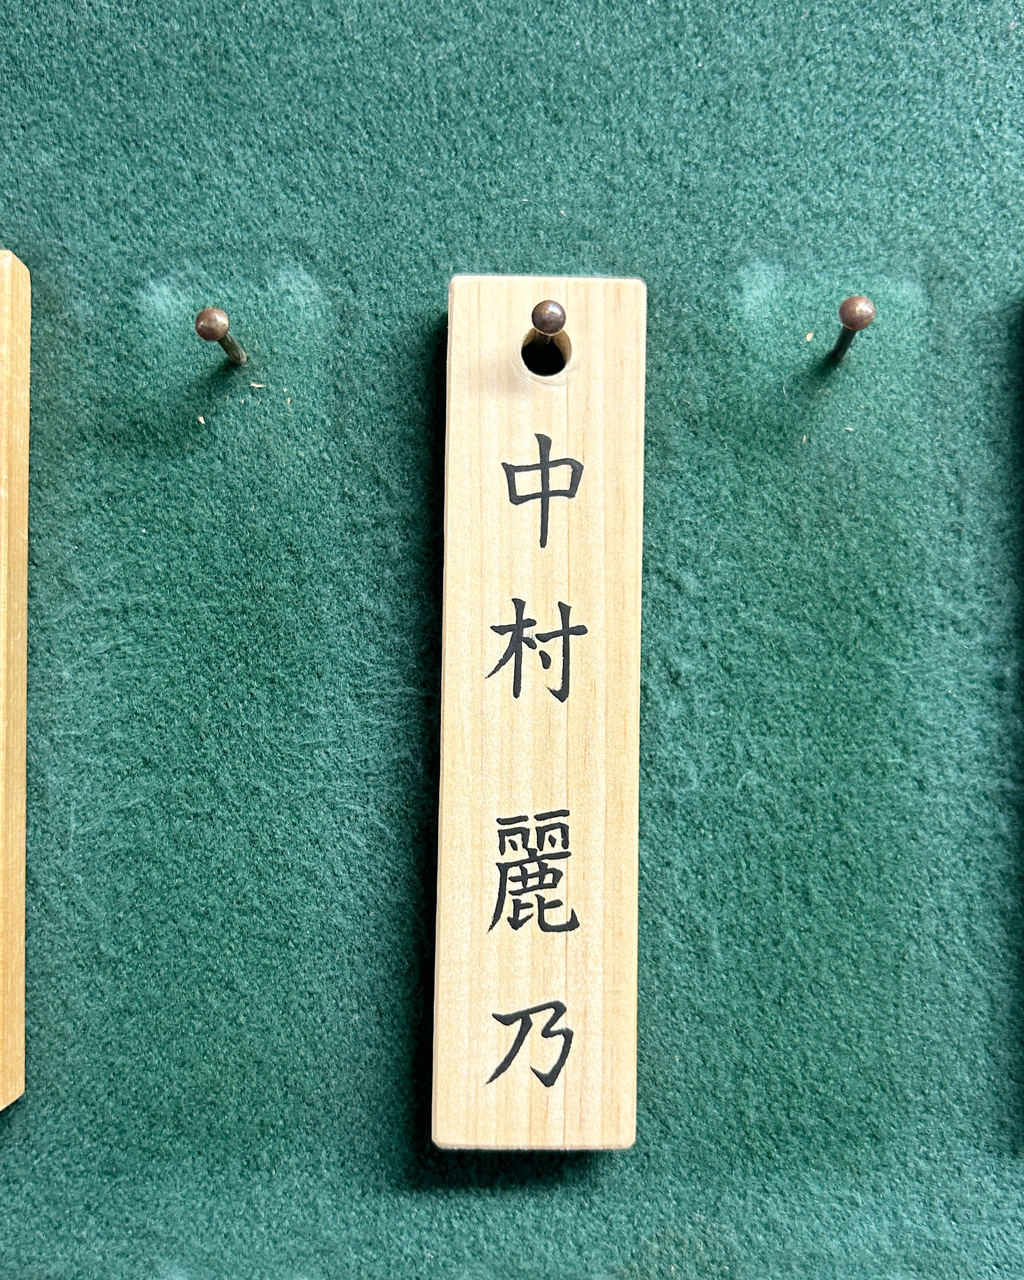 中村麗乃